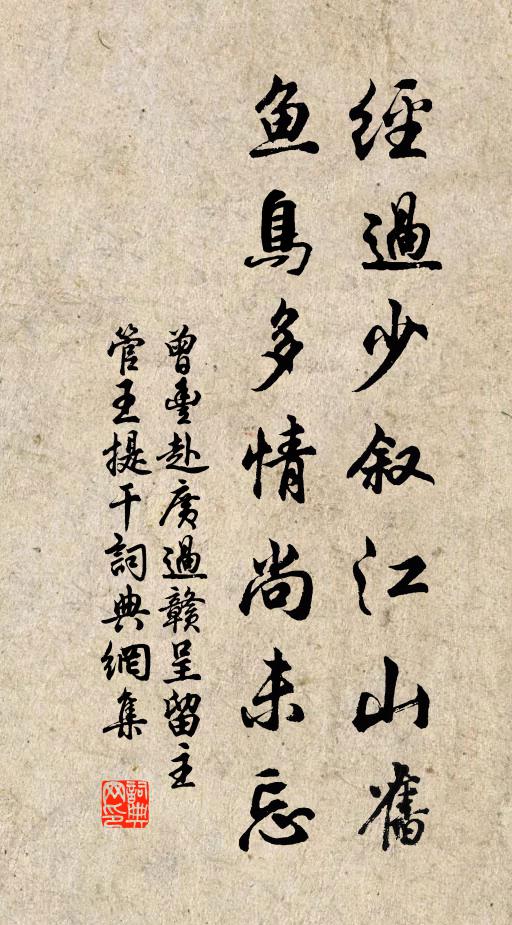 經過少叙江山舊
魚鳥多情尚未忘
曾豐赴廣過贛呈留主
管王提干詞典網集
詞典网印